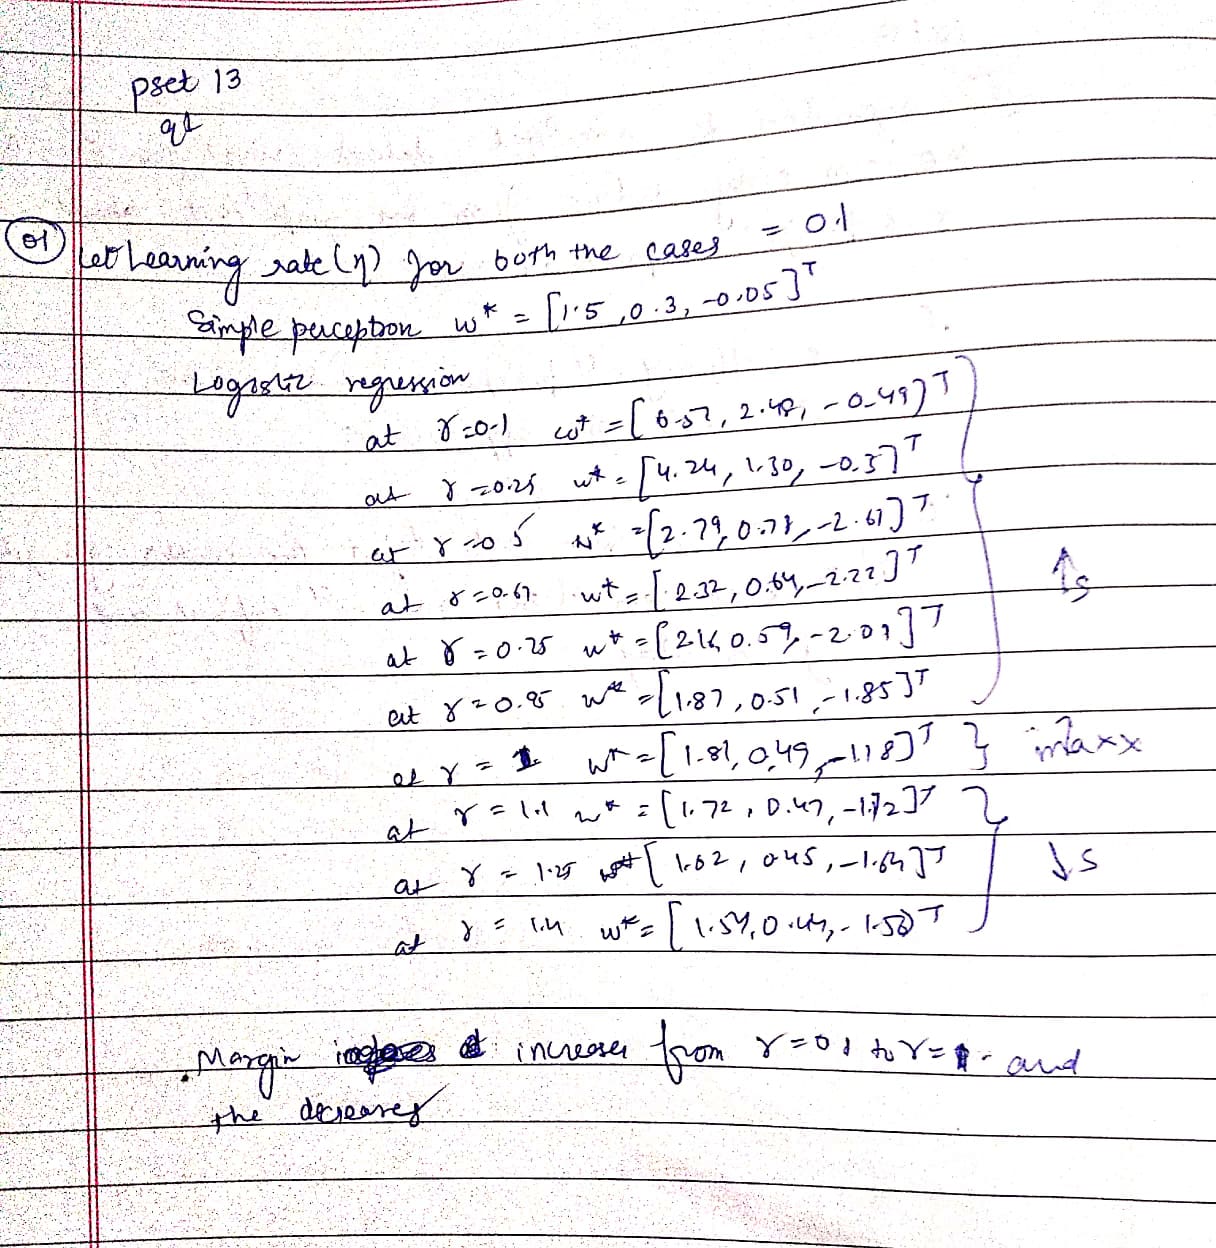 pset 13
q1
Q1 Let Learning rate (η) for both the cases = 0.1
Simple perceptron w* = [1.5, 0.3, -0.05]ᵀ
Logistic regression
at γ=0.1 w* = [6.57, 2.48, -0.49]ᵀ
at γ=0.25 w* = [4.24, 1.30, -0.37]ᵀ
at γ=0.5 w* = [2.79, 0.78, -2.67]ᵀ
at γ=0.67 w* = [2.32, 0.64, -2.22]ᵀ ↑s
at γ=0.75 w* = [2.16, 0.59, -2.09]ᵀ
at γ=0.95 w* = [1.87, 0.51, -1.85]ᵀ
at γ = 1 w* = [1.81, 0.49, -1.18]ᵀ } maxx
at γ = 1.1 w* = [1.72, 0.47, -1.72]ᵀ
at γ = 1.25 w* [1.62, 0.45, -1.64]ᵀ ↓s
at γ = 1.4 w* = [1.54, 0.44, -1.58]ᵀ
. Margin increases from γ=0.1 to γ=1. and
the decreases